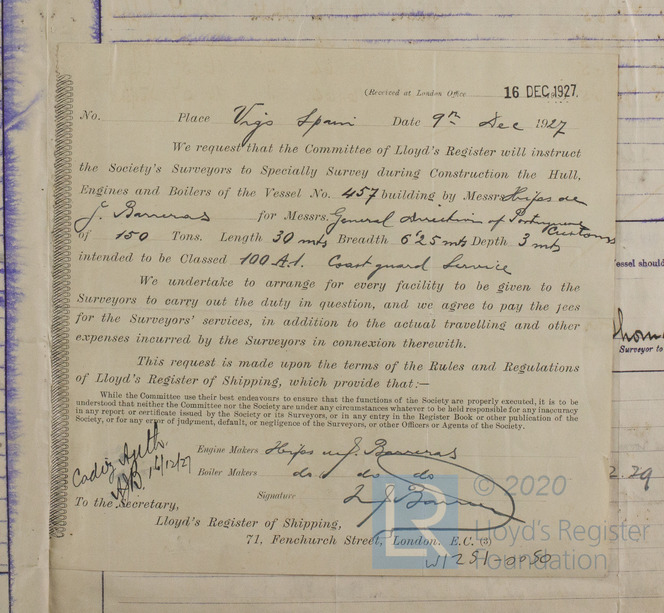 (Received at London Office 16 DEC 1927
No. Place Vigo Spain Date 9th Dec 1927
We request that the Committee of Lloyd's Register will instruct
the Society's Surveyors to Specially Survey during Construction the Hull,
Engines and Boilers of the Vessel No. 457 building by Messrs Hijos de
J. Barreras for Messrs. General Direction of Portuguese Customs
of 150 Tons. Length 30 mts Breadth 6'25 mts Depth 3 mts
intended to be Classed 100 A.1. Coastguard Service
We undertake to arrange for every facility to be given to the
Surveyors to carry out the duty in question, and we agree to pay the fees
for the Surveyors' services, in addition to the actual travelling and other
expenses incurred by the Surveyors in connexion therewith.
This request is made upon the terms of the Rules and Regulations
of Lloyd's Register of Shipping, which provide that:—
While the Committee use their best endeavours to ensure that the functions of the Society are properly executed, it is to be
understood that neither the Committee nor the Society are under any circumstances whatever to be held responsible for any inaccuracy
in any report or certificate issued by the Society or its Surveyors, or in any entry in the Register Book or other publication of the
Society, or for any error of judgment, default, or negligence of the Surveyors, or other Officers or Agents of the Society.
Engine Makers Hijos de J. Barreras
Boiler Makers do do do
Cadiz
16/12/27
Signature J. Barreras
To the Secretary,
Lloyd's Register of Shipping,
71, Fenchurch Street, London. E.C. (3)
W1251-0050
essel should
Surveyor to
29
LR © 2020
Lloyd's Register
Foundation